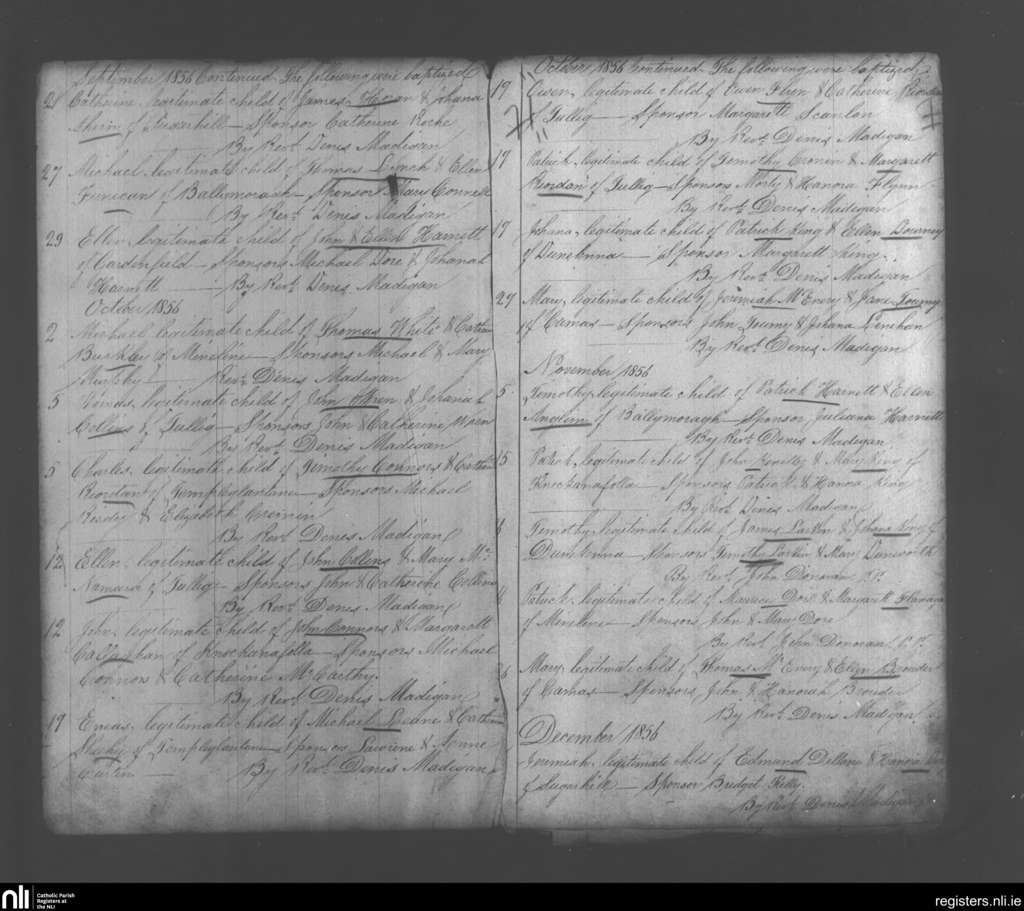 September 1856 Continued The following were baptized
28 Catherine legitimate child of James & Johana
of Sugarhill — Sponsor Catherine Roche
By Revd. Denis Madigan
27 Michael legitimate child of Thomas Lynch & Ellen
Finucan of Ballymoragh — Sponsors Mary Connell
By Revd. Denis Madigan
29 Ellen legitimate child of John & Ellen Harnett
of Gardenfield — Sponsors Michael Dore & Johanah
Harnett — By Revd. Denis Madigan
October 1856
2 Michael legitimate child of Thomas White & Cathn
Buckley of Meneline — Sponsors Michael & Mary
Murphy — Revd. Denis Madigan
5 legitimate child of & Johanah
Collins of Tullig — Sponsors John & Catherine Wren
By Revd. Denis Madigan
5 Charles legitimate child of Timothy Connors & Cathn
Riordan of Templeglantane — Sponsors Michael
& Elizabeth Cronin
By Revd. Denis Madigan
12 Ellen legitimate child of John Collins & Mary Mc
Namara of Tullig — Sponsors John & Catherine Collins
By Revd. Denis Madigan
12 John legitimate child of John Connors & Margarett
Callaghan of Knockanafolla — Sponsors Michael
Connors & Catherine McCarthy
By Revd. Denis Madigan
19 Eneas legitimate child of Michael Leane & Cathn
Sheehy of Templeglantane — Sponsors & Anne
Curtin — By Revd. Denis Madigan
October 1856 Continued The following were baptized
19 Owen legitimate child of Owen Flyn & Catherine Riordan
of Tullig — Sponsor Margarett Scanlon
By Revd. Denis Madigan
19 Patrick legitimate child of Timothy Cronin & Margarett
Riordan of Tullig — Sponsors Morty & Hanora Flynn
By Revd. Denis Madigan
19 Johana legitimate child of Patrick King & Ellen
of — Sponsor Margarett King
By Revd. Denis Madigan
27 Mary legitimate child of Jeremiah McEnery & Jane
of Camas — Sponsors John & Johana Lenehan
By Revd. Denis Madigan
November 1856
5 Timothy legitimate child of Patrick Harnett & Ellen
Anglim of Ballymoragh — Sponsor Juliana Harnett
By Revd. Denis Madigan
5 Patrick legitimate child of John & Mary King of
Knockanafolla — Sponsors Patrick & Hanora King
By Revd. Denis Madigan
8 Timothy legitimate child of James Larkin & Johana King of
— Sponsors Timothy Larkin & Mary Danworth
By Revd. John Donovan P.P.
Patrick legitimate child of Maurice Dore & Margarett Flanagan
of Meneline — Sponsors John & Mary Dore
By Revd. John Donovan P.P.
26 Mary legitimate child of Thomas McEnery & Ellen Broder
of Camas — Sponsors John & Hanorah Broder
By Revd. Denis Madigan
December 1856
Jeremiah legitimate child of Edmund Dillane & Hanora
of Sugarhill — Sponsor Bridget Kelly
By Revd. Denis Madigan
nli Catholic Parish
Registers at
the NLI
registers.nli.ie